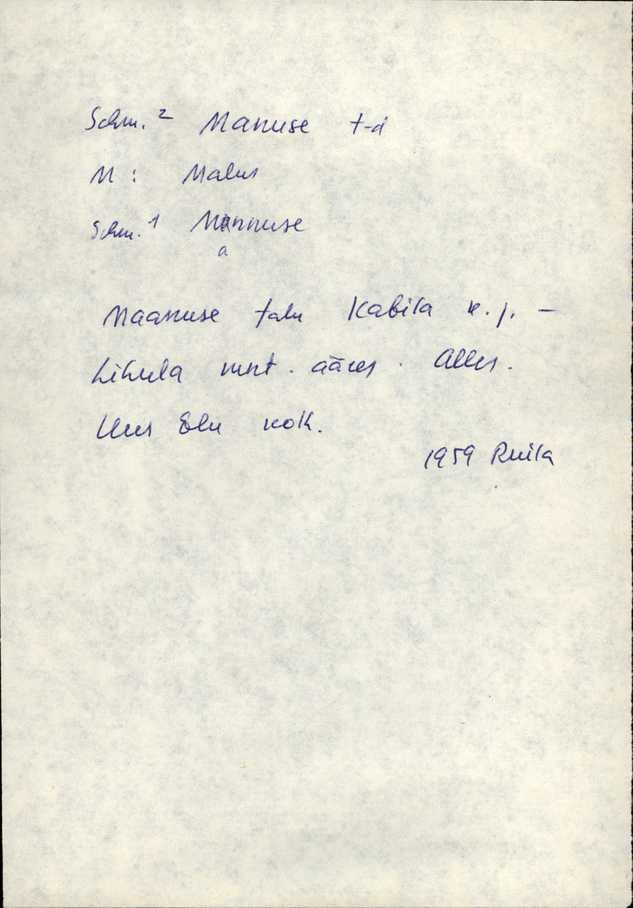 Schm.² Manuse t-d
M: Malus
Schm.¹ Mannuse
a
Maanuse talu Kabila k.j. –
Lihula mnt. ääres. Alles.
Uus Elu kolh.
1959 Ruila